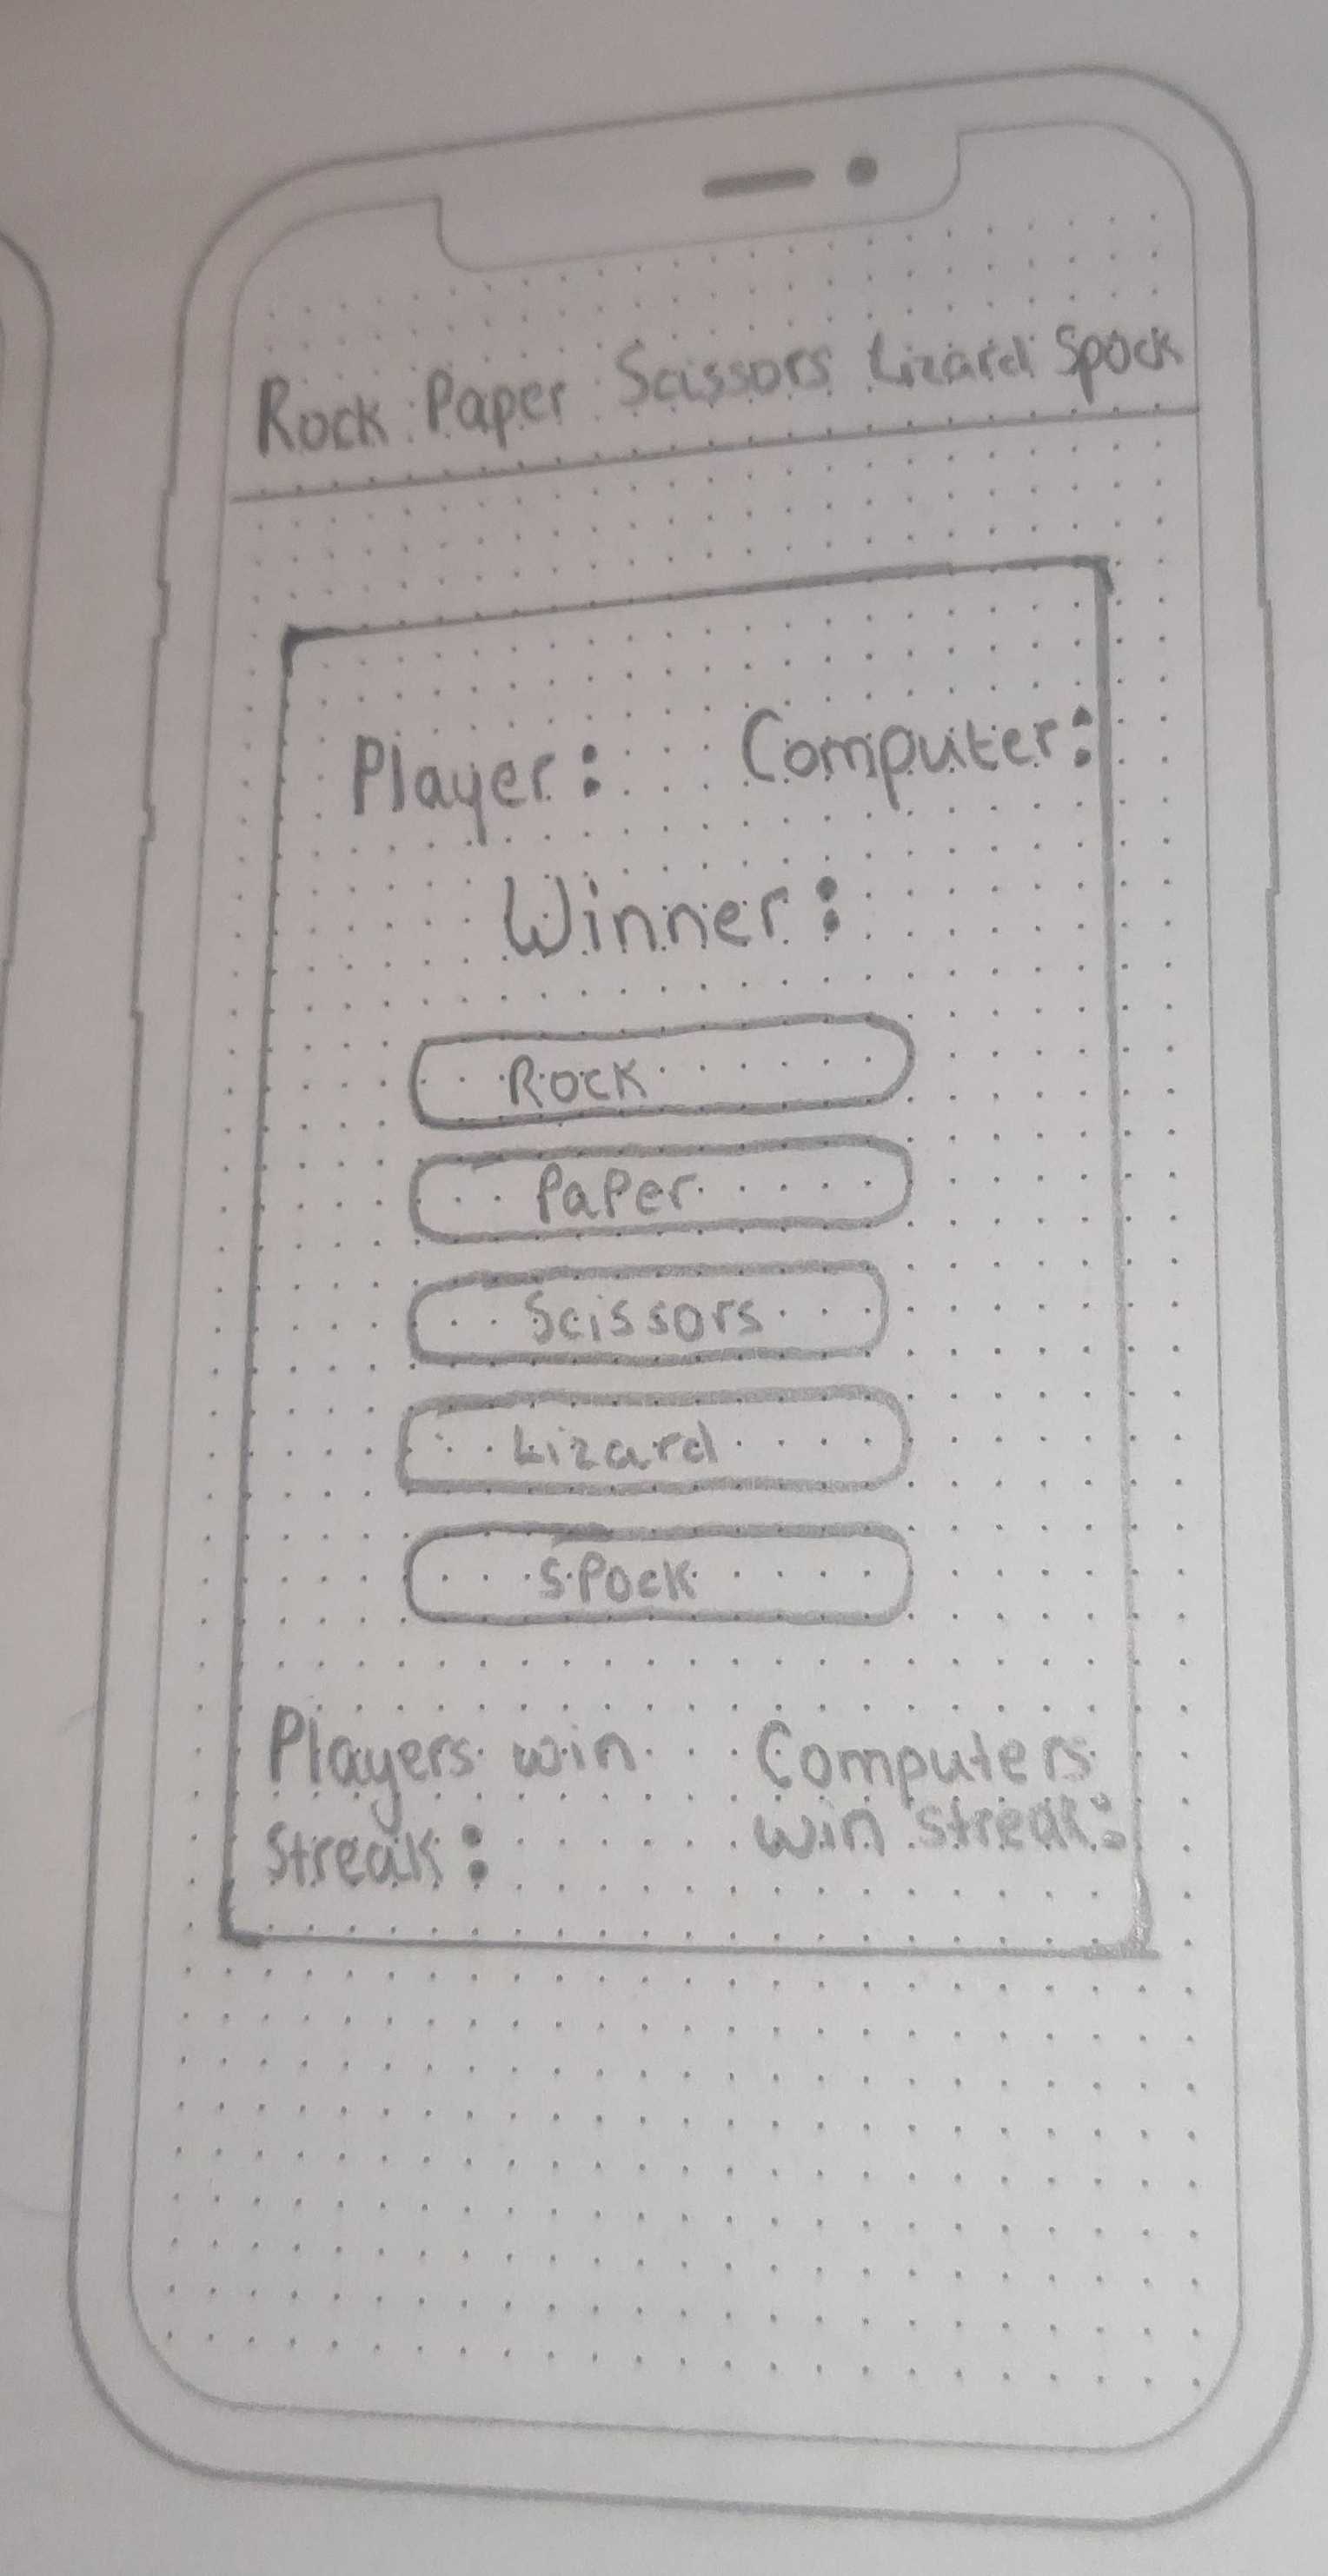 Rock Paper Scissors Lizard Spock
Player: Computer:
Winner:
Rock
Paper
Scissors
Lizard
Spock
Players win
Streak:
Computers
win streak: